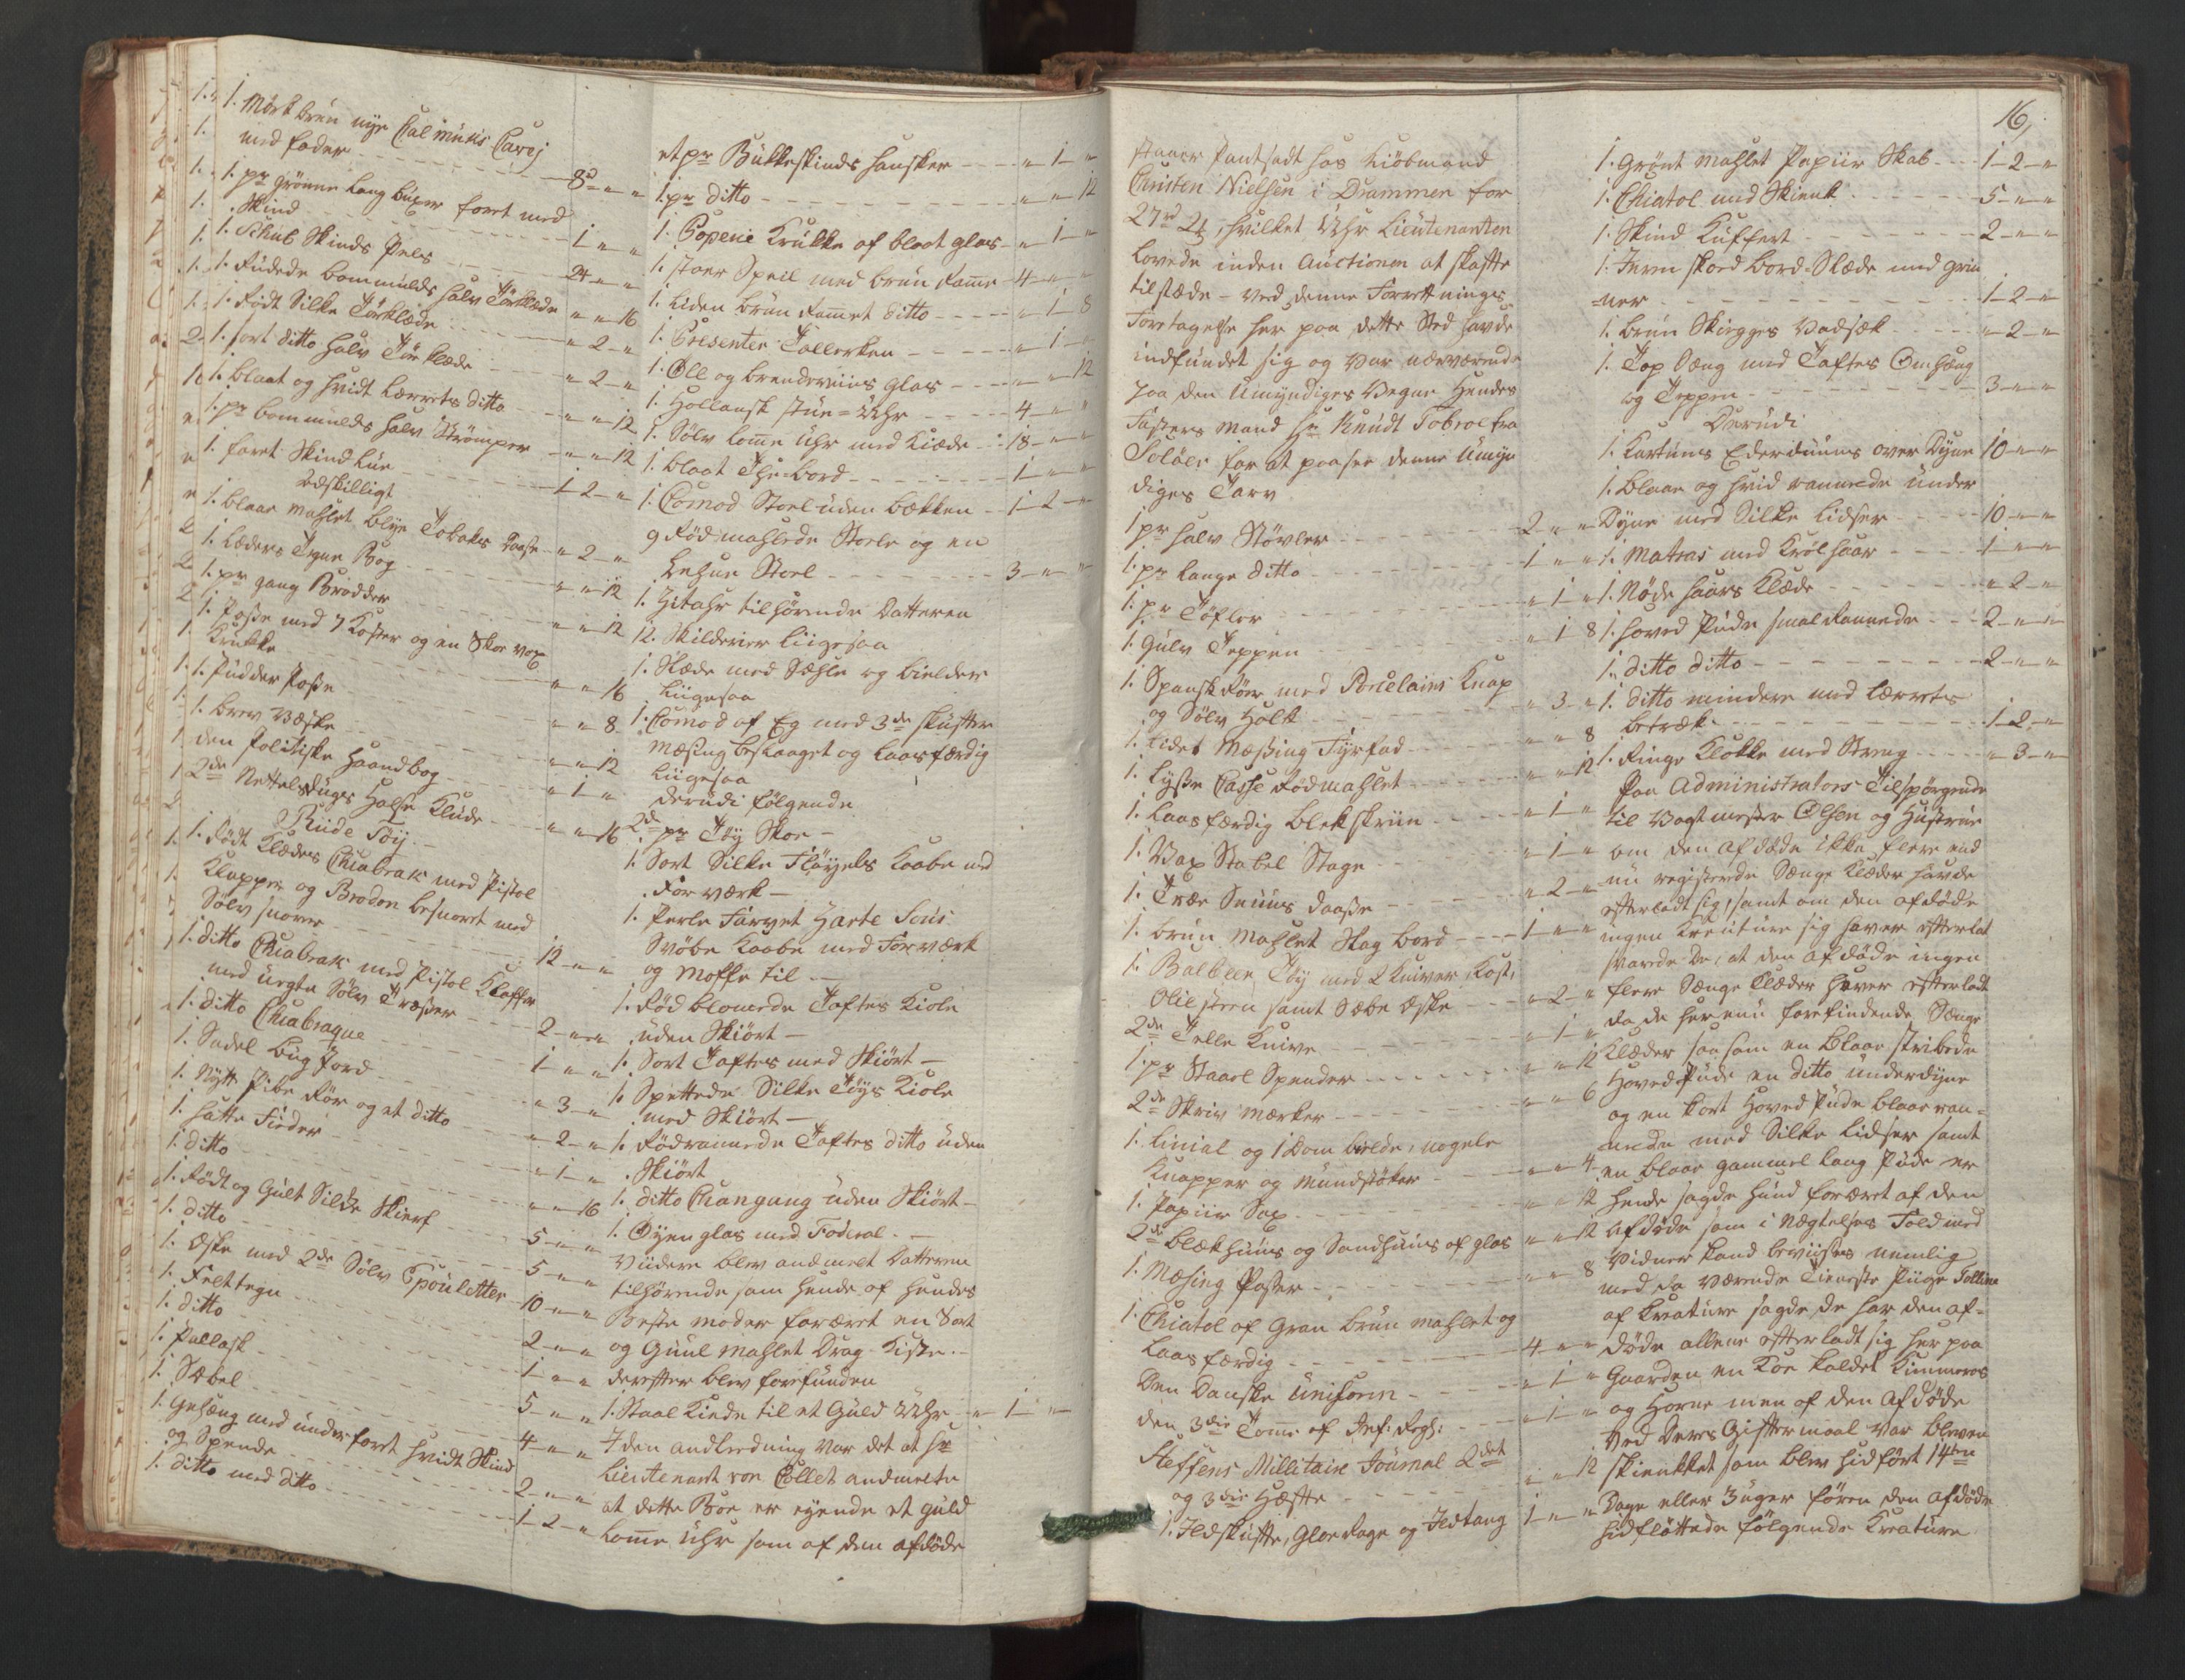 1. Mørkbrun nye Calmuks Cavej
med foder - 8rd " "
1. pr grønne lang buxer foret med
Skind - 1 " "
1. Schub Skinds Pels - 24 " "
1. Rudede bommulds halv Tørklæde " " 16
1. Rødt Silke Tørklæde - " 2 "
1. sort ditto halv Tørklæde - " 2 "
1. blaat og hvidt Lærrets ditto - " " 12
1. pr bommulds halv Strømper - " " 12
1. foret Skind Lue - 1 2 "
Adskilligt
1. blaae mahlet blye Tobaks Daase " 2 "
1. Læders Tegne Bog - " " 12
1. pr gang Brodder - " " 12
1. Poße med 7 Koster og en Skoe vox
Krukke - " " 16
1. Pudder Poße - " " 8
1. brev Væske - " " 12
den Politiske Haandbog - " 1 "
2de Nettelduges Halse Klude - " " 16
Riide Tøij -
1. Rødt Klædes Chiabrak med Pistol
Klapper og Brodon besnoret med
Sølv snorer - 12 " "
1. ditto Chiabrak med Pistol Klapper
med uegte Sølv Træßer - 2 " "
1. ditto Chiabraque - 1 " "
1. Sadel bug Jord - " 3 "
1. Nytt Pibe Rør og et ditto - " 2 "
1. hatte Fieder - " 1 "
1. ditto - " " 16
1. Rødt og Guelt Silke Skierf - 5 " "
1. ditto - 5 " "
1. Æske med 2de Sølv Epouletter 10 " "
1. Felttegn - 2 " "
1. ditto - 1 " "
1. Pallask - 5 " "
1. Sabel - 4 " "
1. Gehæng med under foret hvidt Skind
og Spende - 2 " "
1. ditto med ditto - 1 2 "
et pr Bukkeskinds hansker - " 1 "
1. pr ditto - " " 12
1. Poperie Krukke af blaat glas - " 1 "
1. stoer Speil med brun Ramme - 4 " "
1. Liden brun Rammet ditto - " 1 8
1. Presenter Tallerken - " 1 "
1. Øll og brendeviins glas - " " 12
1. Hollansk Stue-Uhr - 4 " "
1. Sølv Lomme Uhr med Kiæde - 18 " "
1. blaat The-bord - 1 " "
1. Comod Stoel uden bækken - 1 2 "
9 Rød mahlede Stoele og en
Lehne Stoel - 3 " "
1. Zitahr tilhørende Datteren
12. Skilderier liigesaa
1. Slæde med Sæhle og bielder
liigesaa
1. Comod af Eg med 3de skuffer
Mæsing beslaaget og laasfærdig
liigesaa
derudi følgende
2de pr Tøy Skoe -
1. Sort Silke Fløyels Kaabe med
Forværk -
1. Perle Farvet Harte Sous
Svøbe Kaabe med Forværk
og Moffe til -
1. Rød blomede Taftes Kiole
uden Skiørt -
1. Sort Taftes med Skiört -
1. Spettede Silke Töys Kiole
med Skiört -
1. Rødrannede Taftes ditto uden
Skiört
1. ditto Changang uden Skiört -
1. Øyenglas med Foderal -
Viidere blev andmelt Datteren
tilhørende som hende af hendes
Beste moder foræret en Sort
og Guul mahlet Drag-Kiste -
derefter blev forefunden
1. Staal Kiede til et Guld Uhr - " 1 "
I den andledning var det at Hr
Lieutenant von Collet andmelte
at dette Boe er eyende et Guld
Lomme Uhr som af den afdøde
16,
staaer Pantsadt hos Kiöbmand
Christen Nielsen i Drammen for
27rd 2ß, hvilket Uhr Lieutenanten
lovede inden Auctionen at skaffe
tilstæde - Ved denne Forretninges
Foretagelse her paa dette Sted havde
indfundet sig og var nærværende
paa den Umyndiges Vegne Hendes
Fasters Mand Hr Knudt Tobroe fra
Soløer for at paasee denne Umyn
diges Tarv
1 pr halv Støvler - 2 " "
1. pr lange ditto - 1 " "
1. pr Töfler - " 1 "
1. Gulv Teppen - " 1 8
1. Spansk Rör med Porcelains Knap
og Sølv Holk - " 3 "
1. lidet Mæßing Fyrfad - " " 8
1. Lyße Casse Rødmahlet - " " 12
1. Laasfærdig Blekskriin - " 1 "
1. Vax Stabel Stage - " 1 "
1. Træe Snuus Daaße - " 2 "
1. brun Mahlet Slag bord - 1 " "
1. Balbeer Tøy med 2 Kniver, Kost,
Oliesteen samt Sæbe Æske - " 2 "
2de Telle Knive - " 1 "
1. pr Staael Spender - " " 12
2de Skriv Mærker - " " 6
1. Linial og 1 Dom brede, nogele
Knapper og Mundstöker - " " 4
1. Papiir Sax - " " 12
2de blækhuus og Sandhuus af glas " " 12
1. Mæsing Paßer - " " 8
1. Chiatol af Gran brun mahlet og
Laas færdig - 4 " "
Den Danske Uniform - " 1 "
den 3die Tomme af Inf: Regl: - " 1 "
Steffens Millitaire Journal 2det
og 3die Hæfte - " " 12
1. Ildskuffe, Gloe Rage og Ildtang 1 " "
1. Grønt mahlet Papiir Skab - 1 2 "
1. Chiatol med Skienk - 5 " "
1. Skind Kuffert - 2 " "
1. Jernskoed bord-Slæde med grin
-ner - 1 2 "
1. brun Skigges Vadsæk - " 2 "
1. Top Sæng med Taftes Omhæng
og Teppen - 3 " "
Derudi
1. Kartuns Ederduuns over Dyne 10 " "
1. Blaae og hvid rannede under
Dyne med Silke Lidser - 10 " "
1. Matras med Krølhaar - 1 " "
1. Nøde haars Klæde - " 2 "
1. hoved Pude smal Rannede - 2 " "
1. ditto ditto - 2 " "
1. ditto mindere med Lærrets
betræk - 1 2 "
1. Ringe Klokke med Streng - " 3 "
Paa Administrators Tilspörgende
til Vagtmester Olsen og Hustrue
om den Afdøde ikke flere end
nu registerede Sænge Klæder havde
efterladt sig, samt om den afdøde
ingen Kreuturer sig haver efterlat
svarede De, at den Afdøde ingen
flere Sænge Klæder haver efterladt
da de her enu forefindende Sænge
Klæder saasom en blaae stribede
Hoved Pude en ditto underdyne
og en kort Hoved Pude blaae ran-
nede med Silke Lidser samt
en blaae gammel lang Pude er
hende sagde hund foræret af den
Afdøde som i Nægtelses Fold med
Vidner kand beviises nemlig
med da værende Tieneste Piige
af Kreature sagde de har den af-
døde allene efterladt sig her paa
Gaarden en Koe kaldet Kimmeros
og Horne men af den Afdøde
ved Deres Giftermaal var bleven
skienkket som blev hidført 14ten
Dage eller 3 Uger føren den Afdøde
hidfløttede følgende Kreature